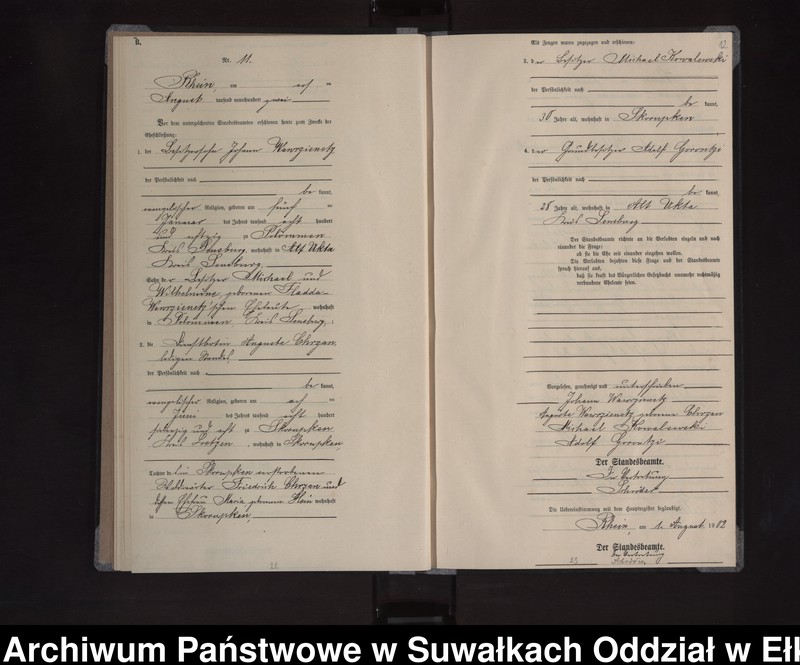 B.
Nr. 11.
Rhein, am
August tausend neunhundert zwei
Vor dem unterzeichneten Standesbeamten erschienen heute zum Zwecke der
Eheschließung:
1. der Besitzersohn Johann Wawrzienetz
der Persönlichkeit nach
be kannt,
evangelischer Religion, geboren am
Januar des Jahres tausend acht hundert
und achtzig zu Polommen
Kreis Sensburg, wohnhaft in Alt Ukta
Kreis Sensburg
Sohn der Besitzer Michael und
Wilhelmine, geborenen
Wawrzienetz'schen Eheleute wohnhaft
in Polommen, Kreis Sensburg,
2. die Dienstbotin Auguste Chrzan,
ledigen Standes,
der Persönlichkeit nach
be kannt,
evangelischer Religion, geboren am
Juni des Jahres tausend acht hundert
und acht zu Skorupken
Kreis Loetzen, wohnhaft in Skorupken,
Tochter des in Skorupken verstorbenen
Friedrich Chrzan und
dessen Ehefrau Maria geborene wohnhaft
in Skorupken,
12
Als Zeugen waren zugezogen und erschienen:
3. der Besitzer Michael Kowalewski
der Persönlichkeit nach
be kannt,
Jahre alt, wohnhaft in Skorupken
4. der Grundbesitzer Adolf
der Persönlichkeit nach
be kannt,
28 Jahre alt, wohnhaft in Alt Ukta
Kreis Sensburg
Der Standesbeamte richtete an die Verlobten einzeln und nach
einander die Frage:
ob sie die Ehe mit einander eingehen wollen.
Die Verlobten bejahten diese Frage und der Standesbeamte
sprach hierauf aus,
daß sie kraft des Bürgerlichen Gesetzbuchs nunmehr rechtmäßig
verbundene Eheleute seien.
Vorgelesen, genehmigt und unterschrieben
Johann Wawrzienetz
Auguste Wawrzienetz geborene Chrzan
Michael Kowalewski
Adolf
Der Standesbeamte.
In Vertretung
Schröder
Die Uebereinstimmung mit dem Hauptregister beglaubigt.
Rhein, am August 1902
Der Standesbeamte.
In Vertretung
Schröder
Archiwum Państwowe w Suwałkach Oddział w Ełk